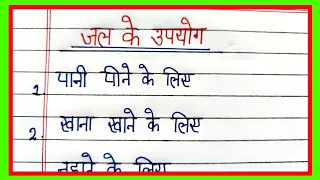 जल के उपयोग
1. पानी पीने के लिए
2. खाना खाने के लिए
नहाने के लिए